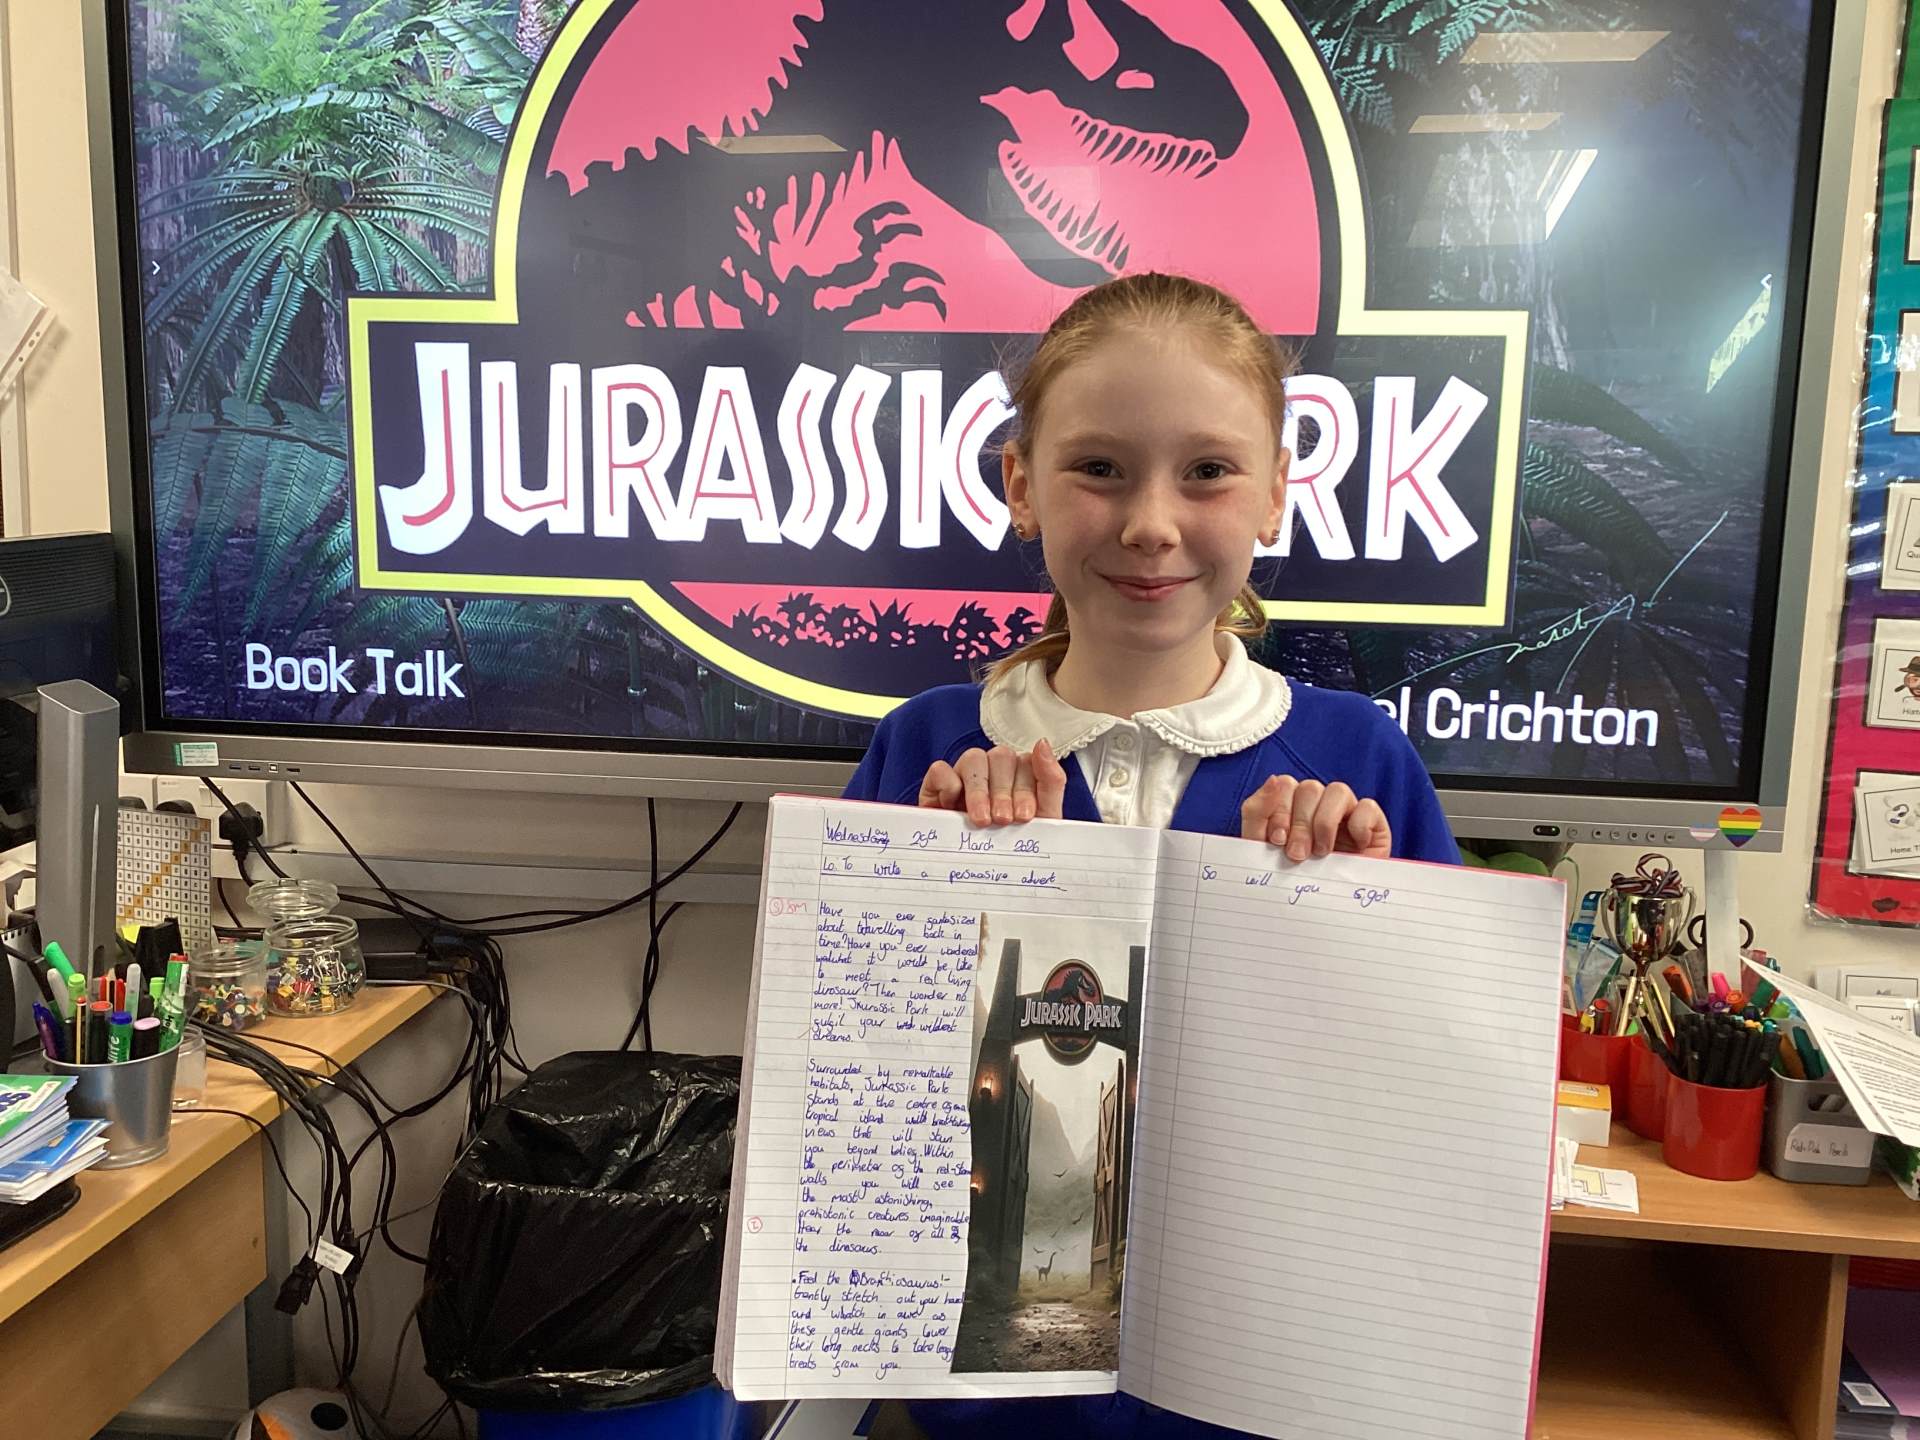 JURASSIC PARK
Book Talk
el Crichton
Wednesday 25th March 2026
Lo: To write a persuasive advert
So will you go?
Have you ever fantasized
about travelling back in
time? Have you ever wondered
what it would be like
to meet a real living
dinosaur? Then wonder no
more! Jurassic Park will
fulfil your wildest
dreams.
Surrounded by remarkable
habitats, Jurassic Park
stands at the centre of a
tropical island with breathtaking
views that will stun
you beyond belief. Within
the perimeter of the red-stone
walls you will see
the most astonishing,
prehistoric creatures imaginable
Hear the roar of all
the dinosaurs.
. Feel the Brachiosaurus! -
Gently stretch out your hand
and watch in awe as
these gentle giants lower
their long necks to take leafy
treats from you.
JURASSIC PARK
Red Pink Pencils